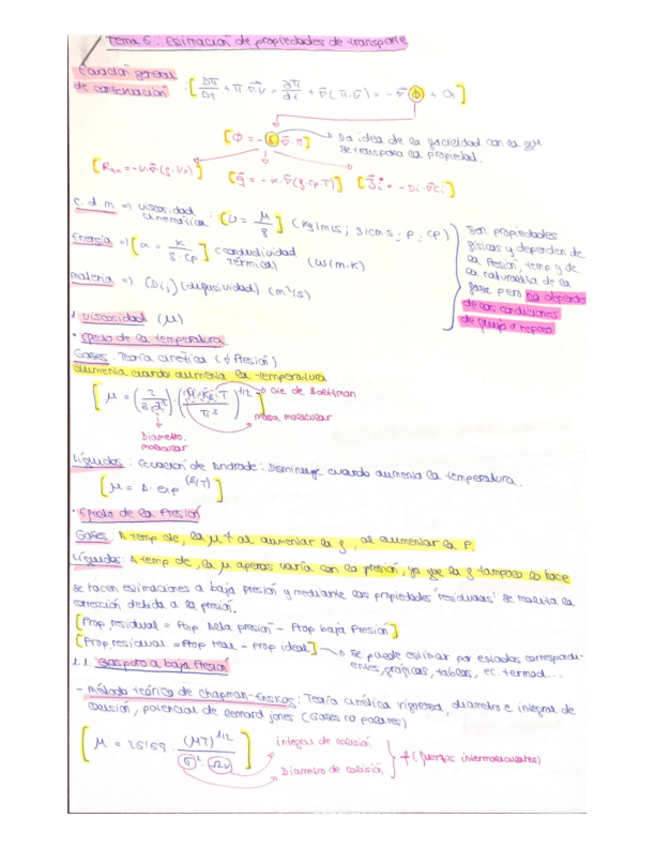 Tema 6. Estimación de propiedades de transporte
Ecuación general
de conservación : [ Dπ/Dt + π·∇·v = ∂π/∂t + ∇(π·v) = -∇ Φ + G ]
[ Φ = - δ ∇·π ] → Da idea de la facilidad con la que
se transporta la propiedad.
[ = -ν·∇(ρ·Vx) ] [ q = -α·∇(ρ·cp·T) ] [ Ji* = -Di·∇ci ]
c. d. m => viscosidad
cinemática : [ ν = μ/ρ ] (kg/m·s ; g/cm·s ; P ; cP)
Energía => [ α = k/ρ·cp ] (conductividad
térmica) (W/m·K)
materia => (Dij) (difusividad) (m²/s)
Son propiedades
físicas y dependen de
la presión, temp y de
la naturaleza de la
fase pero no dependen
de las condiciones
de flujo o reposo
1. Viscosidad (μ)
• Efecto de la temperatura
Gases: Teoría cinética (↓ Presión)
aumenta cuando aumenta la temperatura
[ μ = (2/3·d²)·(M·K·T/π³)^1/2 ] → cte de Boltzman
masa molecular
Diametro
molecular
Líquidos: Ecuación de Andrade: Disminuye cuando aumenta la temperatura.
[ μ = A·exp^(B/T) ]
• Efecto de la Presión
Gases: A temp cte, la μ ↑ al aumentar la ρ, al aumentar la P.
Líquidos: A temp cte, la μ apenas varía con la presión, ya que la ρ tampoco lo hace
Se hacen estimaciones a baja presión y mediante las propiedades "residuales" se realiza la
corrección debida a la presión.
[Prop residual = Prop Alta presión - Prop baja Presión]
[Prop. residual = Prop real - Prop ideal] → Se puede estimar por estados correspondi-
entes, gráficas, tablas, ec. termod...
1.1. Gas puro a baja Presión
- método teórico de Chapman-Enskog: Teoría cinética rigurosa, diametro e integral de
colisión, potencial de Lennard Jones (Gases no polares)
[ μ = 26'69 · (MT)^1/2 / σ²·Ωv ]
integral de colisión
Diametro de colisión
f (fuerzas intermoleculares)